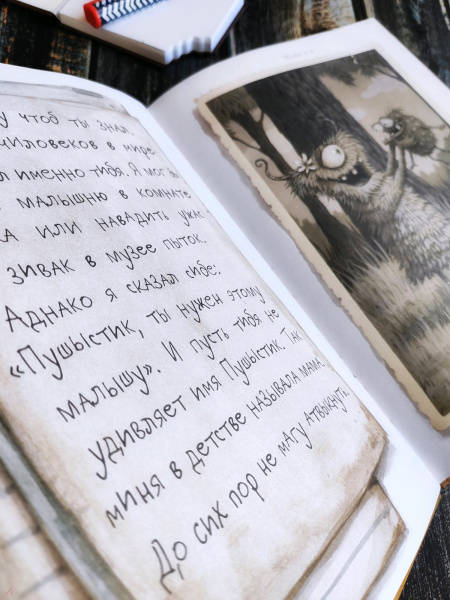 у чтоб ты знал.
чиловеков в мире
л именно тибя. Я мог
малышню в комнате
А или наводить ужас
зивак в музее пыток.
Аднако я сказал сибе:
«Пушыстик, ты нужен этому
малышу». И пусть тибя не
удивляет имя Пушыстик. Так
миня в детстве называла мама.
До сих пор не магу атвыкнуть.